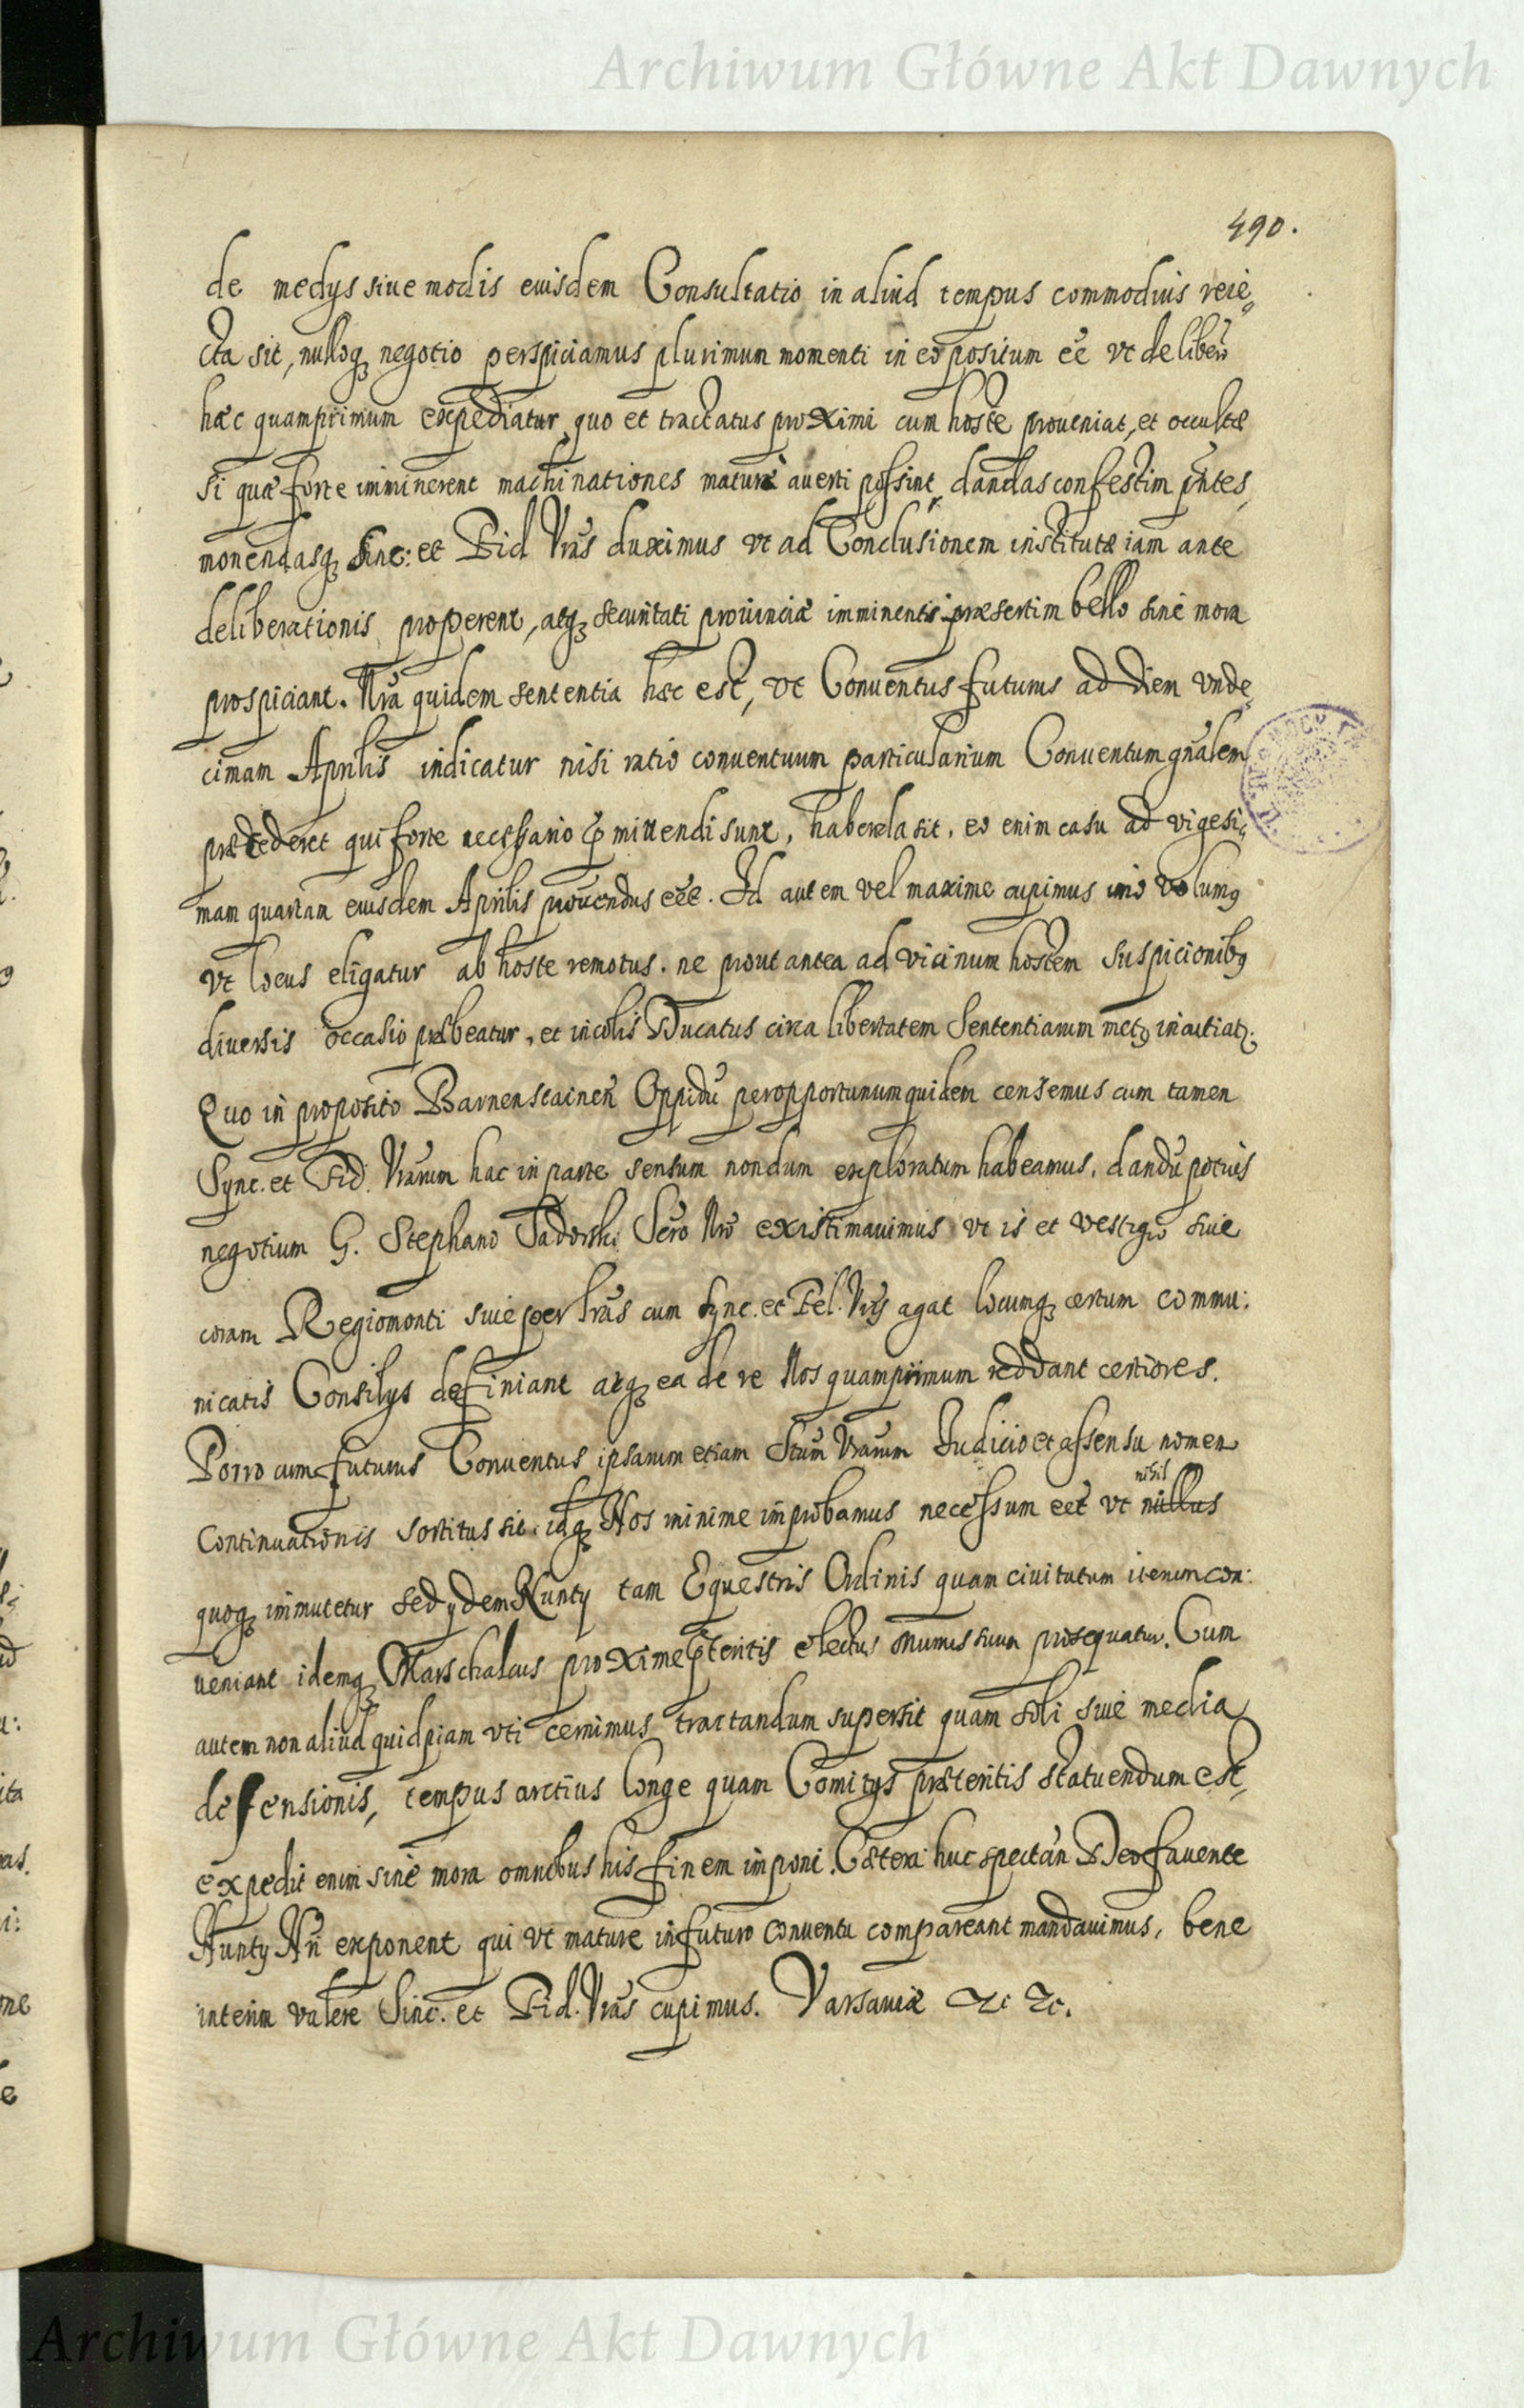 Archiwum Główne Akt Dawnych
490.
de medys siue modis eiusdem Consultatio in aliud tempus commodius reie„
cta sit, nulloq negotio perspiciamus plurimum momenti in eo positum eē vt deliberō
hæc quamprimum expediatur quo et tractatus proximi cum hoste proueniat, et occultæ
si quæ forte imminerent machinationes maturè auerti possint, dandas confestim pn̄tes,
monendasq Sinc: et Fid Vrās duximus vt ad Conclusionem institutæ iam ante
deliberationis properent, atq securitati prouinciæ imminentis præsertim bello sine mora
prospiciant. Nrā quidem sententia hæc est, vt Conuentus futurus ad diem vnde„
cimam Aprilis indicatur nisi ratio conuentuum particularium Conuentum gn̄alem
præcederet qui forte necessario p̄mittendi sunt, habenda sit, eo enim casu ad vigesi„
mam quartam eiusdem Aprilis prouendus eēt. Id autem vel maxime cupimus imo volumq
vt locus eligatur ab hoste remotus. ne prout antea ad vicinum hostem suspicionibq
diuersis occasio præbeatur, et incolis Ducatus circa libertatem Sententiarum metq
Quo in proposito Barnenstainen̄ Oppidū peropportunum quidem censemus cum tamen
Sync. et Fid. Vrarum hac in parte sensum nondum exploratum habeamus, dandū potius
negotium G. Stephano Sadorski Secrō Nrō existimauimus vt is et vestigio siue
coram Regiomonti siue per lrās cum Sync. et Fel. Vrīs agat locumq certum commu:
nicatis Consilys definiant atq ea de re Nos quamprimum reddant certiores.
Porro cum futurus Conuentus ipsarum etiam Stum Vrarum Iudicio et assensu nomen
Continuationis sortitus sit, idq Nos minime improbamus necessum eēt vt nullus nihil
quoq immutetur sed ydem Nunty tam Equestris Ordinis quam ciuitatum iterum con:
ueniant idemq Marschalcus proxime p̄teritis electus munus suum prosequatur. Cum
autem non aliud quidpiam vti cernimus tractandum supersit quam soli siue media
defensionis, tempus arctius longe quam Comitys præteritis statuendum est,
expedit enim sine mora omnibus his finem imponi. Cætera huc spectan̄ Deo fauente
Nunty Nrī exponent qui vt mature in futuro conuentu compareant mandauimus, bene
interim valere Sinc. et Fid. Vrās cupimus. Varsauiæ &c &c.
Archiwum Główne Akt Dawnych